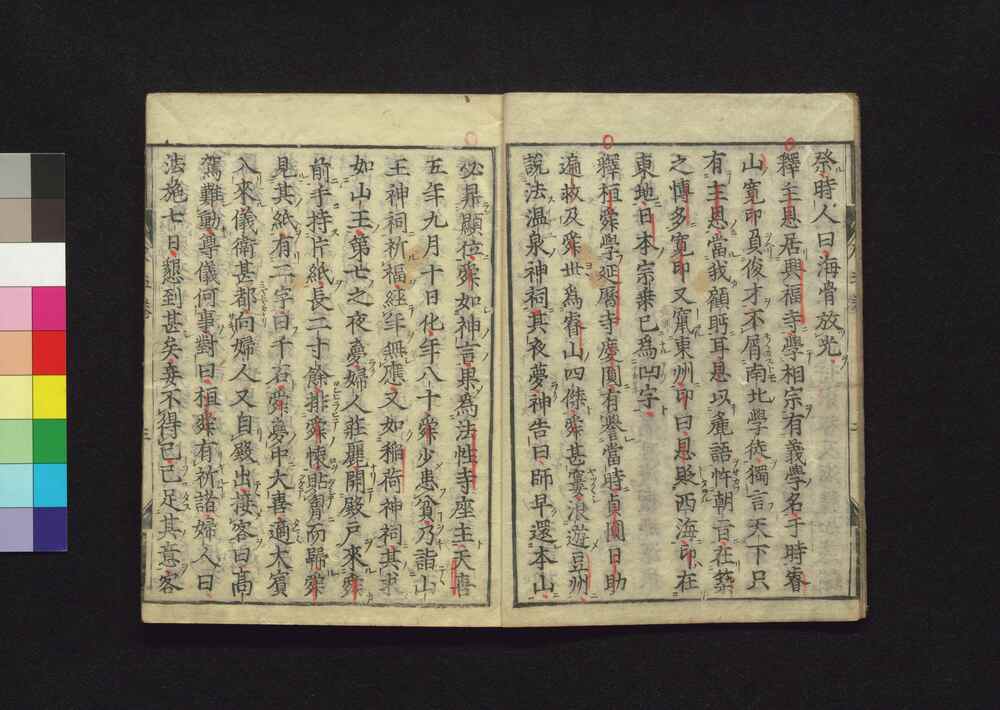 祭時人曰海骨放光
釋主恩居興福寺學相宗有義學名于時睿
山寬印負俊才不屑南北學徒獨言天下只
有主恩當我顧眄耳恩以麁語忤朝旨在築
之博多寬印又竄東州印曰恩貶西海印在
東地日本宗乗已為凹字
釋桓舜學延曆寺慶圓有譽當時貞圓日助
遍救及舜世為睿山四傑舜甚寠浪遊豆州
說法溫泉神祠其夜夢神告曰師早還本山
必昇顯位舜如神言果為法性寺座主天喜
五年九月十日化年八十舜少患貧乃詣山
王神祠祈福經年無應又如稲荷神祠其求
如山王第七之夜夢婦人莊麗開殿戶來舜
前手持片紙長二寸餘排舜懷貼胷而歸舜
見其紙有二字曰千石舜夢中大喜適大賓
入來儀衛甚都向婦人又自殿出接客曰高
駕難動尊儀何事對曰桓舜有祈諸婦人曰
法施七日懇到甚矣妾不得已已足其意客